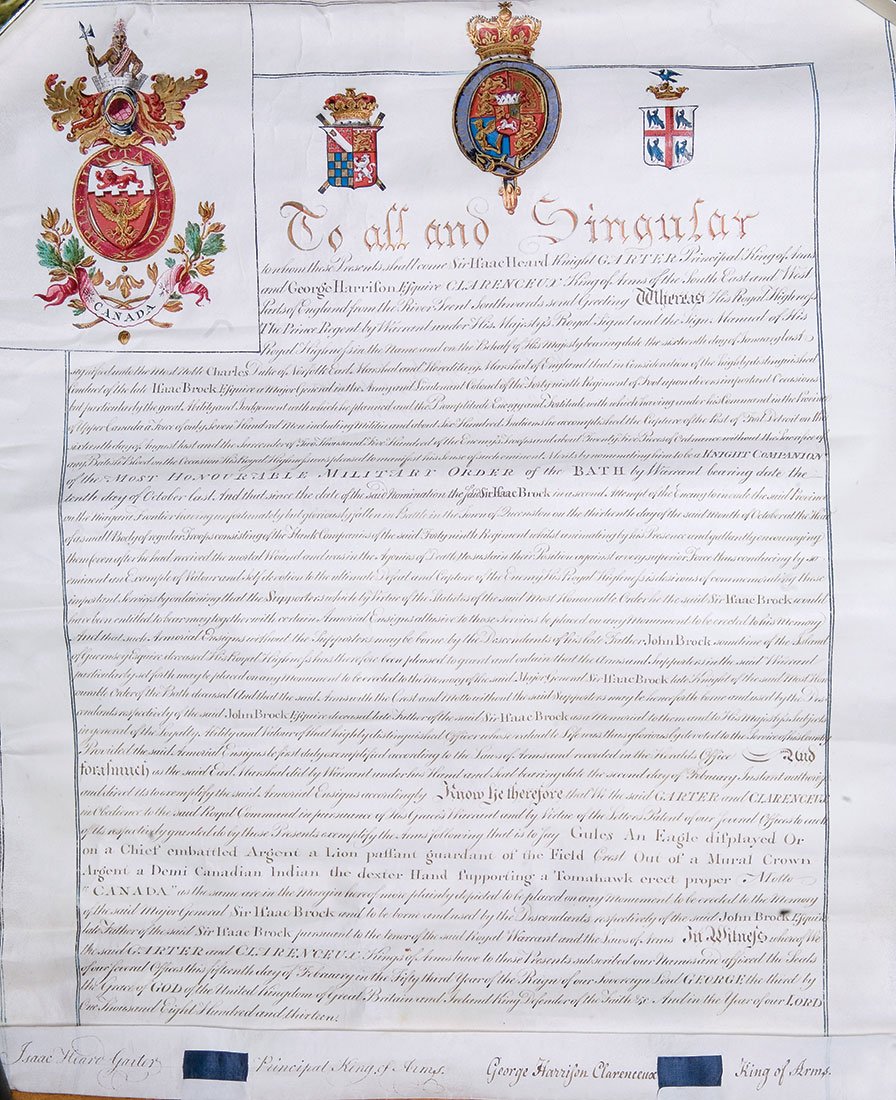 TRIA JUNCTA IN UNO
CANADA
To all and Singular
to whom these Presents shall come Sir Isaac Heard Knight GARTER Principal King of Arms
and George Harrison Esquire CLARENCEUX King of Arms of the South East and West
Parts of England from the River Trent Southwards send Greeting Whereas His Royal Highness
The Prince Regent by Warrant under His Majesty's Royal Signet and the Sign Manual of His
Royal Highness in the Name and on the Behalf of His Majesty bearing date the sixteenth day of January last
signified unto the Most Noble Charles Duke of Norfolk Earl Marshal and Hereditary Marshal of England that in Consideration of the highly distinguished
Conduct of the late Isaac Brock Esquire a Major General in the Army and Lieutenant Colonel of the Forty ninth Regiment of Foot upon divers important Occasions
but particularly the great Ability and Judgement with which he planned and the Promptitude Energy and Fortitude with which having under his Command in the Province
of Upper Canada a Force of only Seven Hundred Men including Militia and about Six Hundred Indians he accomplished the Capture of the Post of Fort Detroit on the
sixteenth day of August last and the Surrender of Two Thousand Five Hundred of the Enemy's Troops and about Twenty Five Pieces of Ordnance without the Sacrifice of
any British Blood on the Occasion His Royal Highness was pleased to manifest his Sense of such eminent Merits by nominating him to be a KNIGHT COMPANION
of the MOST HONOURABLE MILITARY ORDER of the BATH by Warrant bearing date the
tenth day of October last. And that since the date of the said Nomination the said Sir Isaac Brock in a second Attempt of the Enemy to invade the said Province
on the Niagara Frontier having unfortunately but gloriously fallen in Battle in the Town of Queenston on the thirteenth day of the said Month of October at the Head
of a small Body of regular Troops consisting of the Flank Companies of the said Forty ninth Regiment whilst animating by his Presence and gallantly encouraging
them even after he had received the mortal Wound and was in the Agonies of Death to sustain their Position against a very superior Force thus conducing by so
eminent an Example of Valour and self devotion to the ultimate Defeat and Capture of the Enemy His Royal Highness is desirous of commemorating these
important Services by ordaining that the Supporters which by Virtue of the Statutes of the said Most Honorable Order he the said Sir Isaac Brock would
have been entitled to bear may together with certain Armorial Ensigns allusive to those Services be placed on any Monument to be erected to his Memory
And that such Armorial Ensigns without the Supporters may be borne by the Descendents of his late Father John Brock sometime of the Island
of Guernsey Esquire deceased His Royal Highness has therefore been pleased to grant and ordain that the Arms and Supporters in the said Warrant
particularly set forth may be placed on any Monument to be erected to the Memory of the said Major General Sir Isaac Brock late Knight of the said Most Hon-
ourable Order of the Bath deceased And that the said Arms with the Crest and Motto without the said Supporters may be henceforth borne and used by the Des-
cendents respectively of the said John Brock Esquire deceased late Father of the said Sir Isaac Brock as a Memorial to them and to His Majesty's Subjects
in general of the Loyalty Ability and Valour of that highly distinguished Officer whose valuable Life was thus gloriously devoted to the Service of his Country
Provided the said Armorial Ensigns be first duly exemplified according to the Laws of Arms and recorded in the Heralds Office And
forasmuch as the said Earl Marshal did by Warrant under his Hand and Seal bearing date the second day of February Instant authorize
and direct Us to exemplify the said Armorial Ensigns accordingly Know Ye therefore that We the said GARTER and CLARENCEUX
in Obedience to the said Royal Command in pursuance of His Grace's Warrant and by Virtue of the Letters Patent of our several Offices to each
of Us respectively granted do by these Presents exemplify the Arms following that is to say Gules An Eagle displayed Or
on a Chief embattled Argent a Lion passant guardant of the Field Crest Out of a Mural Crown
Argent a Demi Canadian Indian the dexter Hand supporting a Tomahawk erect proper Motto
"CANADA" as the same are in the Margin hereof more plainly depicted to be placed on any Monument to be erected to the Memory
of the said Major General Sir Isaac Brock and to be borne and used by the Descendants respectively of the said John Brock Esquire
late Father of the said Sir Isaac Brock pursuant to the tenor of the said Royal Warrant and the Laws of Arms In Witness whereof We
the said GARTER and CLARENCEUX Kings of Arms have to these Presents subscribed our Names and affixed the Seals
of our several Offices this fifteenth day of February in the Fifty third Year of the Reign of our Sovereign Lord GEORGE the third by
the Grace of GOD of the United Kingdom of Great Britain and Ireland King Defender of the Faith &c And in the Year of our LORD
One Thousand Eight Hundred and thirteen.
Isaac Heard Garter Principal King of Arms. George Harrison Clarenceux King of Arms.